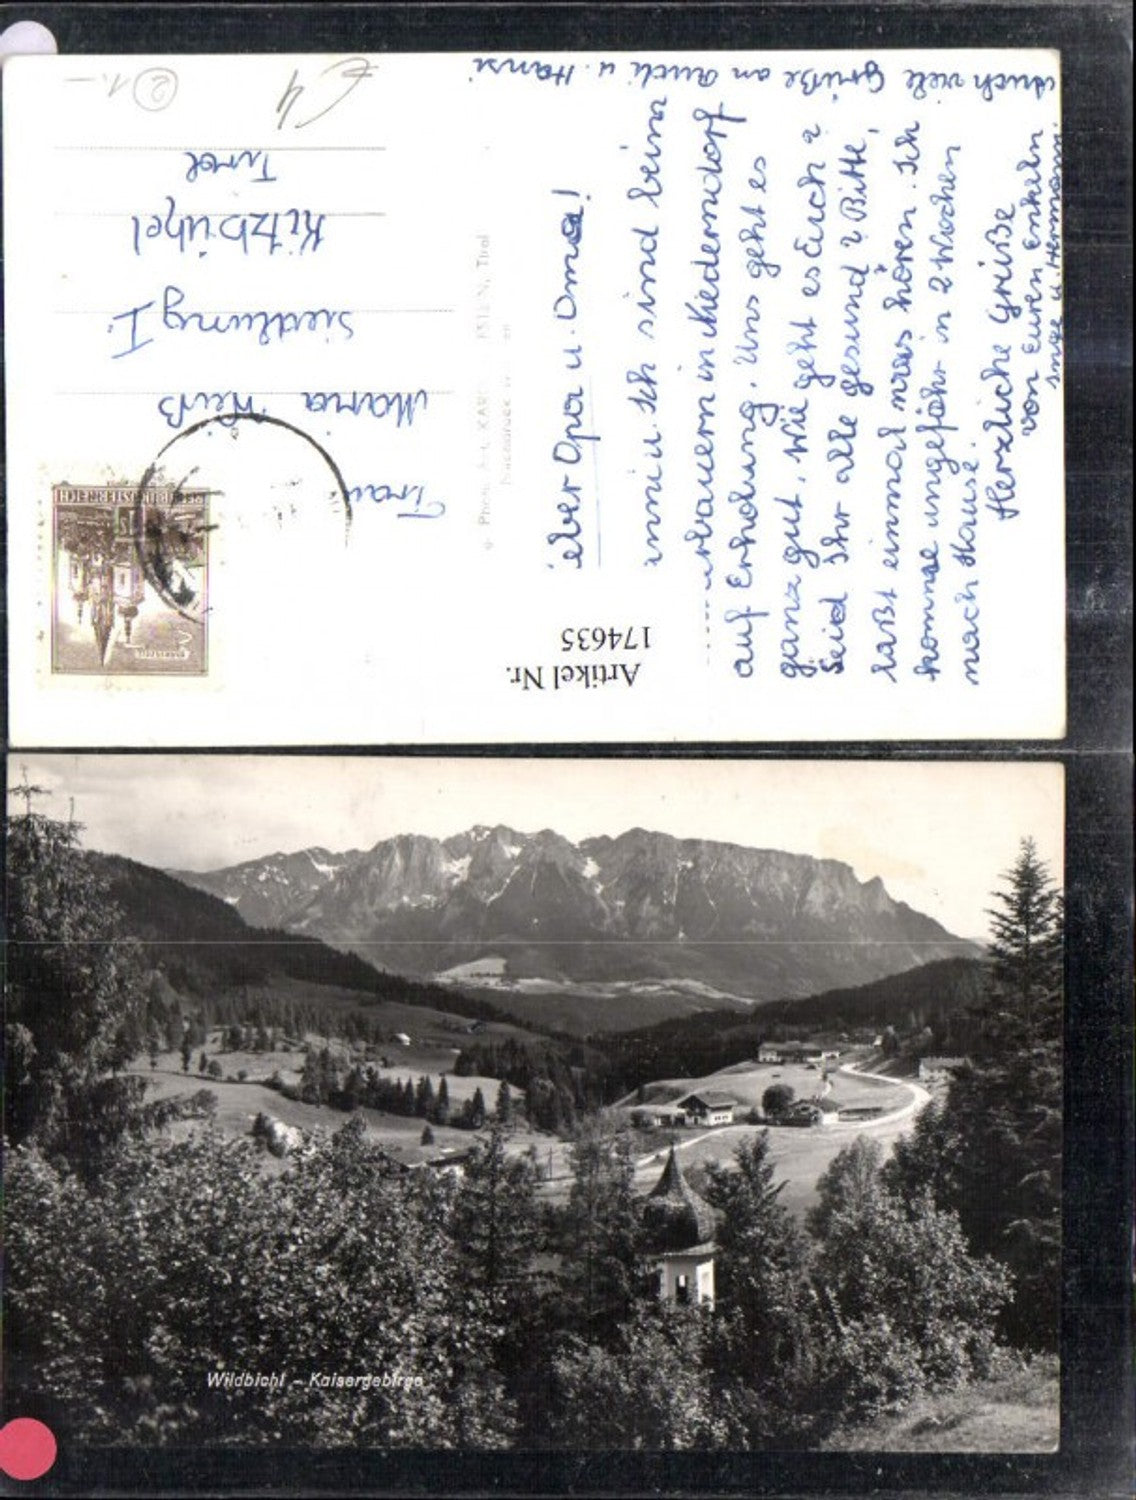 Lieber Opa u. Oma!
Immi u. Ich sind beim
auf Erholung. Uns geht es
ganz gut. Wie geht es Euch?
Seid Ihr alle gesund? Bitte,
laßt einmal was hören. Ich
komme ungefähr in 2 Wochen
nach Hause.
Herzliche Grüße
von Euren Enkeln
Inge u. Hermann.
Auch viele Grüße an Rudi u. Hansi
Frau
Maria Weiß
Siedlung I.
Kitzbühel
Tirol
€4
2 1.-
Artikel Nr.
174635
REPUBLIK ÖSTERREICH
Wildbichl - Kaisergebirge